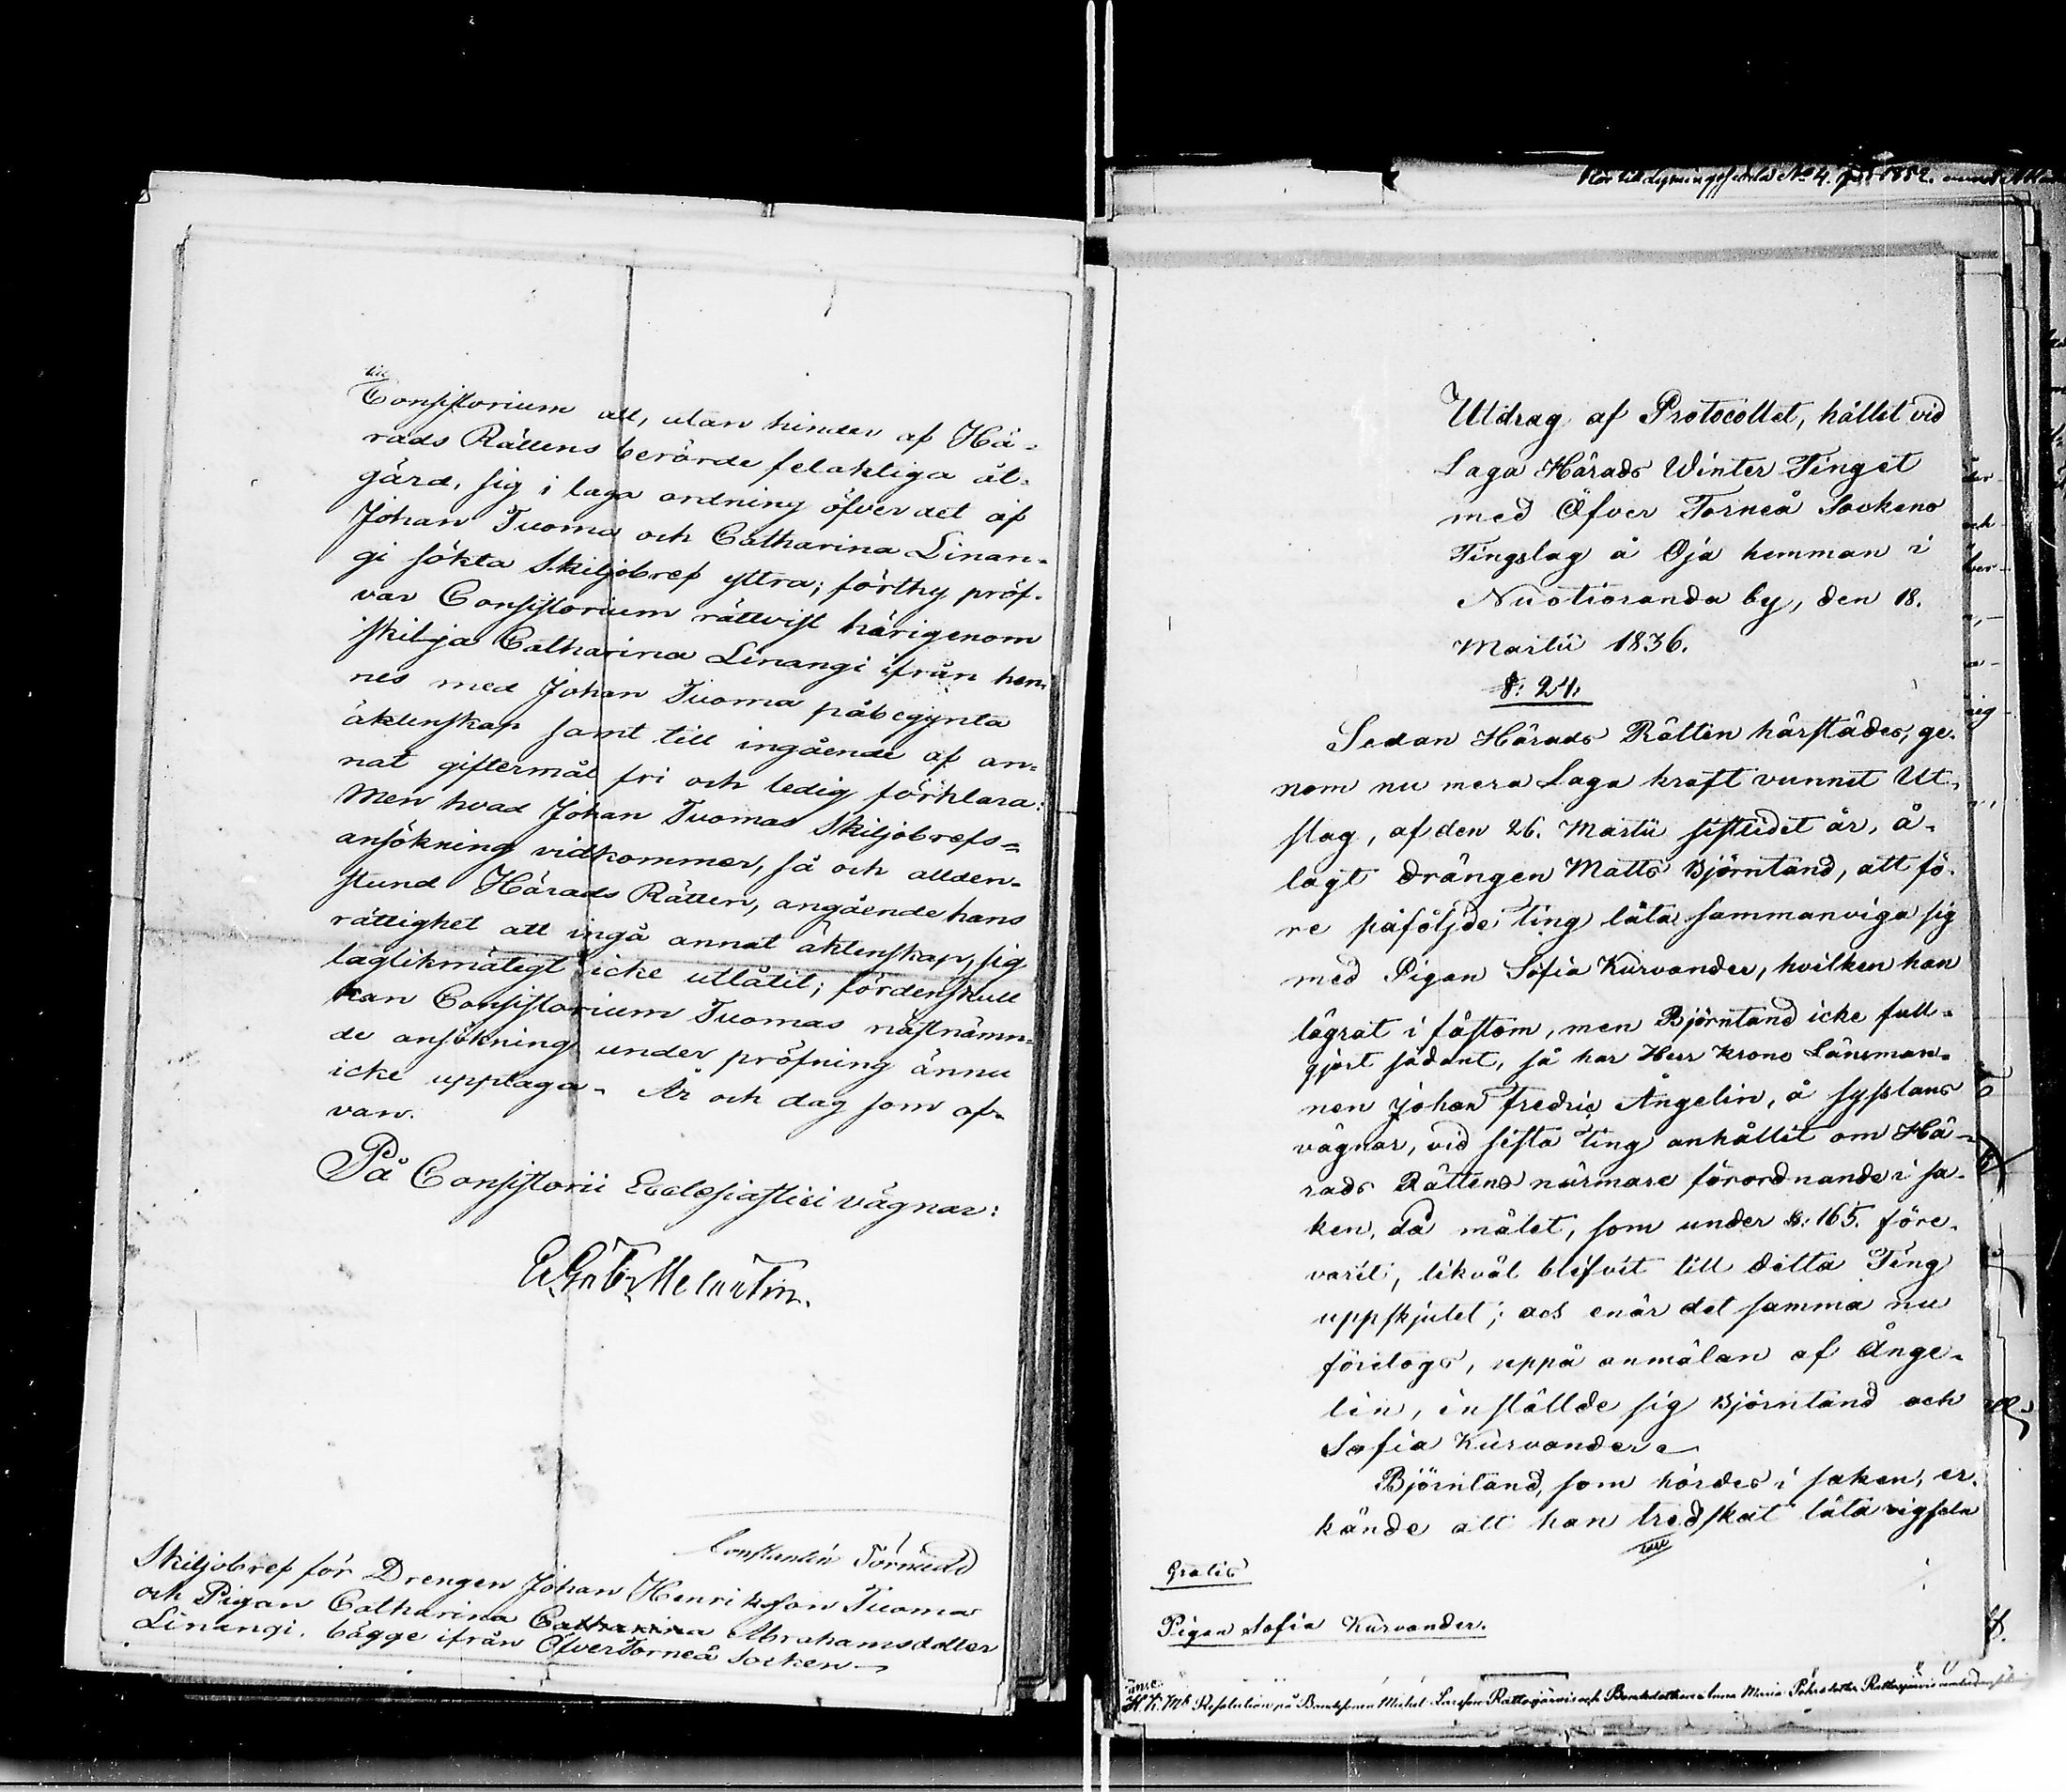 till
Consistorium att, utan hinder af Hä-
rads Rättens berörde felaktiga åt-
gärd, sig i laga ordning öfver det af
Johan Tuoma och Catharina Linan-
gi sökta Skiljobref yttra; förthy pröf-
var Consistorium rättvist härigenom
skilja Catharina Linangi ifrån hen-
nes med Johan Tuoma påbegynta
äktenskap samt till ingående af an-
nat giftermål fri och ledig förklara:
Men hvad Johan Tuomas Skiljobrefs=
ansökning vidkommer, så och allden-
stund Härads Rätten, angående hans
rättighet att ingå annat äktenskap, sig
laglikmätigt icke utlåtit; fördenskull
kan Consistorium Tuomas nästnämn-
de ansökning under pröfning ännu
icke upptaga. År och dag som of-
van.
På Consistorii Ecclesiastici vägnar:
Melartin.
Constantin Törnudd
Skiljobref för Drengen Johan Henriksson Tuoma
och Pigan Catharina Catharina Abrahamsdotter
Linangi, bägge ifrån ÖfverTorneå Socken
No 4. 1852.
Utdrag af Protocollet, hållet vid
Laga Härads Winter Tinget
med Öfver Torneå Sockens
Tingslag å Oja hemman i
Nuotioranda by, den 18.
Martii 1836.
§: 24.
Sedan Härads Rätten härstädes, ge-
nom nu mera Laga kraft vunnet Ut-
slag, af den 26. Martii sistledet år, å-
lagt drängen Matts Björntand, att fö-
re påföljde ting låta sammanviga sig
med Pigan Sofia Kurvander, hvilken han
lägrat i fästom, men Björntand icke full-
gjort sådant, så har Herr Krono Länsman-
nen Johan Fredric Ångelin, å sysslans
vägnar, vid sista ting anhållit om Hä-
rads Rättens närmare förordnande i sa-
ken, då målet, som under §: 165. före-
varit, likväl blifvit till detta Ting
uppskjutet; och enär det samma nu
företogs, uppå anmälan af Ånge-
lin, inställde sig Björntand och
Sofia Kurvander.
Björntand, som hördes i saken, er-
kände att han tredskat låta vigseln
Gratis
Pigan Sofia Kurvander.
Resolution på Bondesonen Michel Larsson Rattosjärvi och Bondedottren Anna Maria Pehrsdotter Rattosjärvis